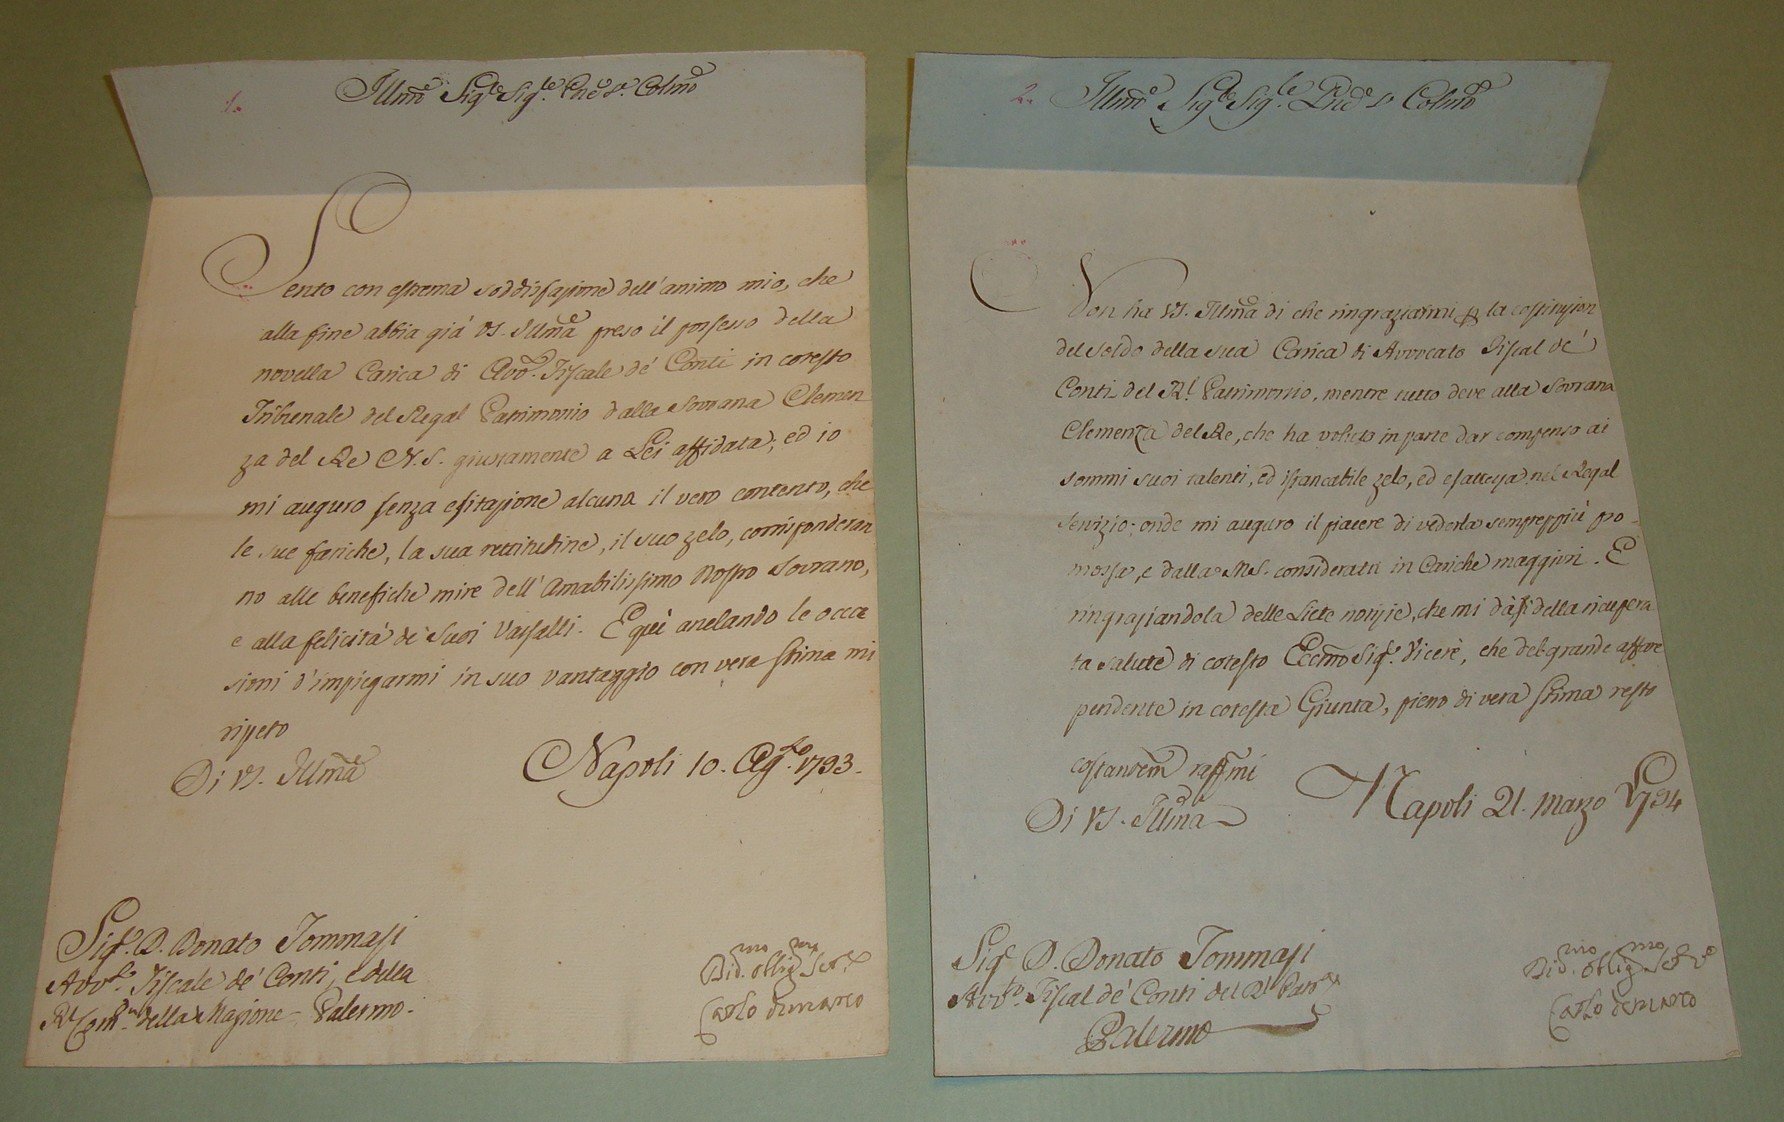 1.
Illmo Sigle Sigle Pne So Colmo
Sento con estrema soddisfazione dell'animo mio, che
alla fine abbia già VS. Illma preso il possesso della
novella Carica di Avvo. Fiscale de' Conti in cotesto
Tribunale del Regal Patrimonio dalla Sovrana Clemen
za del Re N.S. giustamente a Lei affidata; ed io
mi auguro senza esitazione alcuna il vero contento, che
le sue fatiche, la sua rettitudine, il suo zelo, corrisponderan
no alle benefiche mire dell'Amabilissimo Nostro Sovrano,
e alla felicità de' Suoi Vassalli. E quì anelando le occa
sioni d'impiegarmi in suo vantaggio con vera stima mi
ripeto
Di VS. Illma
Napoli 10. Ago. 1793.
Sigr. D. Donato Tommasi
Avvo. Fiscale de' Conti, e della
Rl Commda della Magione - Palermo.
Divmo. obligmo Serve
Carlo Demarco
2.
Illmo Sigle Sigle Pne So Colmo
Non ha VS. Illma di che ringraziarmi per la
del Soldo della sua Carica di Avvocato Fiscal de'
Conti del Rl. Patrimonio, mentre tutto deve alla Sovrana
Clemenza del Re, che ha voluto in parte dar compenso ai
sommi suoi talenti, ed istancabile zelo, ed esattezza nel Regal
Servizio; onde mi auguro il piacere di vederla sempreppiù pro
mossa, e dalla M.S. considerata in Cariche maggiori. E
ringraziandola delle liete notizie, che mi dà, sì della ricupera
ta salute di cotesto Eccmo Sigr. Vicerè, che del grande affare
pendente in cotesta Giunta, pieno di vera stima resto
costantemte raffmi
Di VS. Illma
Napoli 21. Marzo 1794
Sigr. D. Donato Tommasi
Avvo. Fiscal de' Conti del Rl Patrio
Palermo
Divmo. obligmo Serve
Carlo Demarco